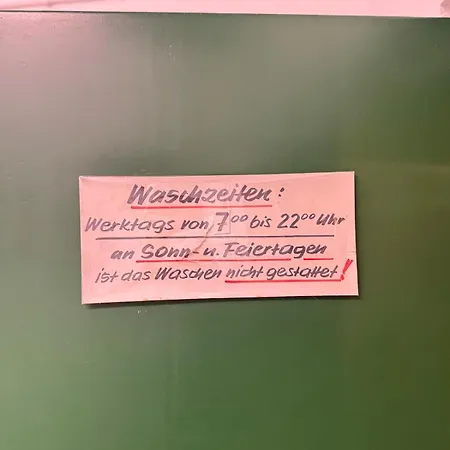 Waschzeiten:
Werktags von 7⁰⁰ bis 22⁰⁰ Uhr
an Sonn- u. Feiertagen
ist das Waschen nicht gestattet!